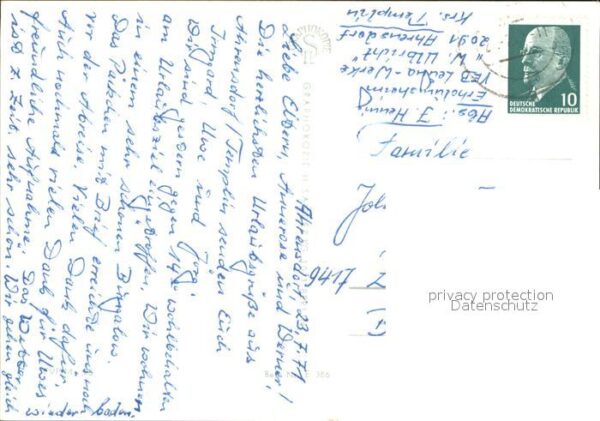 Ahrensdorf, 23.7.71
Liebe Eltern, Annerose und Werner!
Die herzlichsten Urlaubsgrüße aus
Ahrensdorf/Templin senden Euch
Irmgard, Uwe und
Wir sind gestern gegen 14h wohlbehalten
am Urlaubsziel eingetroffen. Wir wohnen
in einem sehr schönen Bungalow.
Das Päckchen mit Brief erreichte uns noch
vor der Abreise. Vielen Dank dafür.
Auch nochmals vielen Dank für Uwes
freundliche Aufnahme. Das Wetter
ist z. Zeit sehr schön. Wir gehen gleich
wieder baden.
Abs.: J. Henni
Erholungsheim
VEB Leuna-Werke
"W. Ulbricht"
2091 Ahrensdorf
Krs. Templin
Familie
Joh
7146
DEUTSCHE
DEMOKRATISCHE REPUBLIK
10
privacy protection
Datenschutz